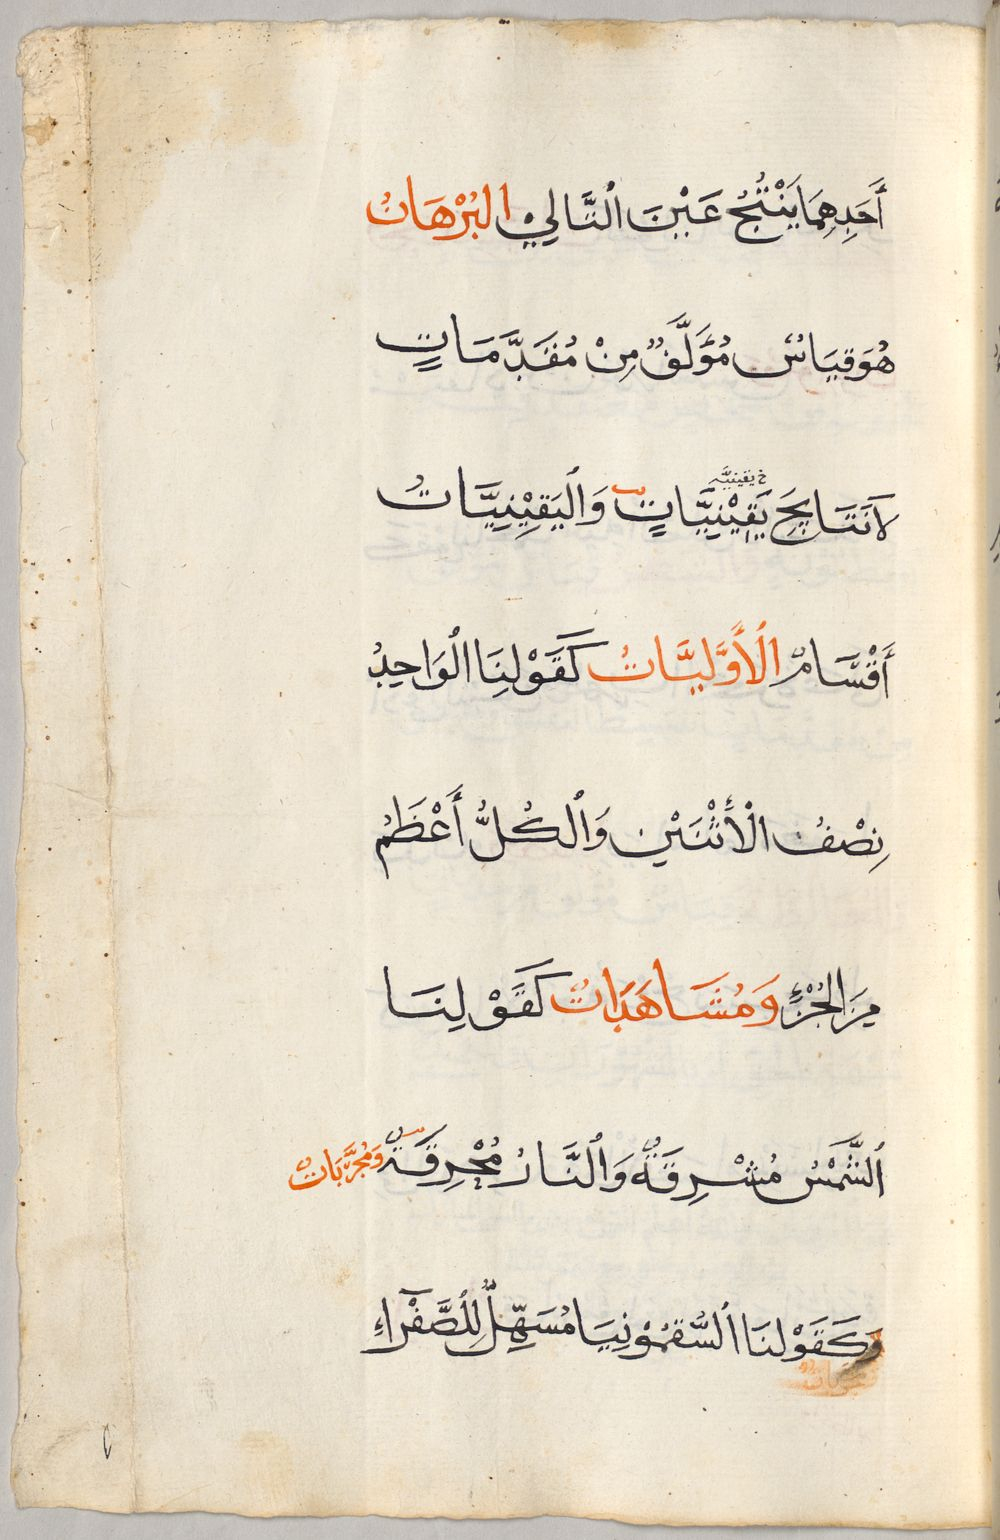 أَحَدِهِمَا يَنْتُجُ عَيْنَ ٱلتَّالِيْ البُرْهَانُ
هُوَ قِيَاسٌ مُؤَلَّفٌ مِنْ مُقَدَّمَاتٍ
خ يقينيّه
لِاَنْتَايِجَ يَقِيْنِيَّاتٍ وَٱليَقِيْنِيَّاتُ
أَقْسَامٌ ٱلْأَوَّلِيَّاتُ كَقَوْلِنَا ٱلْوَاحِدُ
نِصْفُ الْأَثْنَيْنِ وَٱلْكُلُّ أَعْظَمُ
مِنَ الجُزْءِ وَمُشَاهَدَاتٌ كَقَوْلِنَا
ٱلشَّمْسُ مُشْرِقَةٌ وَٱلنَّارُ مُحْرِقَةٌ وَمُجَرَّبَاتٌ
وَكَقَوْلِنَا ٱلسَّقَمُوْنِيَا مُسَهِّلٌ لِلصَّفْرَاءِ